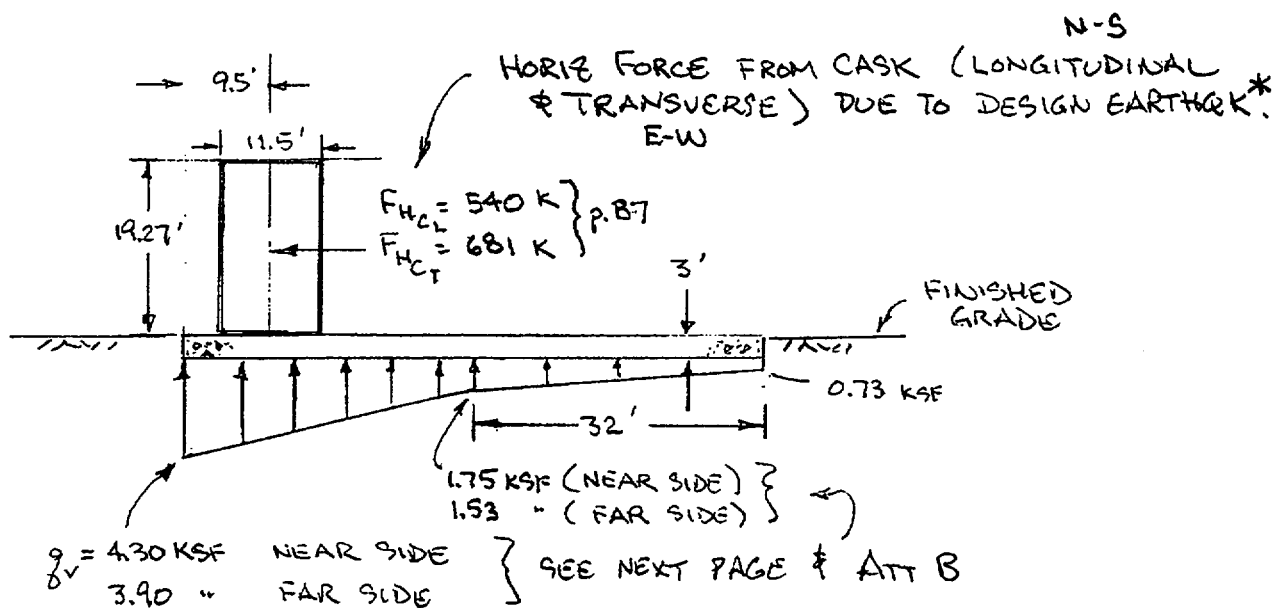 N-S
HORIZ FORCE FROM CASK (LONGITUDINAL
& TRANSVERSE) DUE TO DESIGN EARTHQK*.
E-W
9.5'
11.5'
19.27'
F_HCL = 540 K
F_HCT = 681 K
p.B7
3'
FINISHED
GRADE
0.73 KSF
32'
1.75 KSF (NEAR SIDE)
1.53 " (FAR SIDE)
qv = 4.30 KSF NEAR SIDE
3.90 " FAR SIDE
SEE NEXT PAGE & ATT B